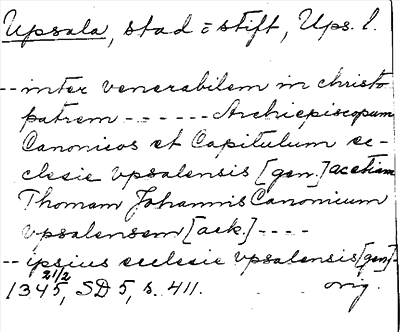 Upsala, stad = stift, Ups. l.
-- inter venerabilem in christo
patrem ------ Archiepiscopum
Canonicos et Capitulum ec-
clesie vpsalensis [gen.] ac etiam
Thomam Johannis Canonicum
vpsalensem [ack.] ----
-- ipsius ecclesie vpsalensis [gen] -
1345 21/2, SD 5, s. 411. orig.